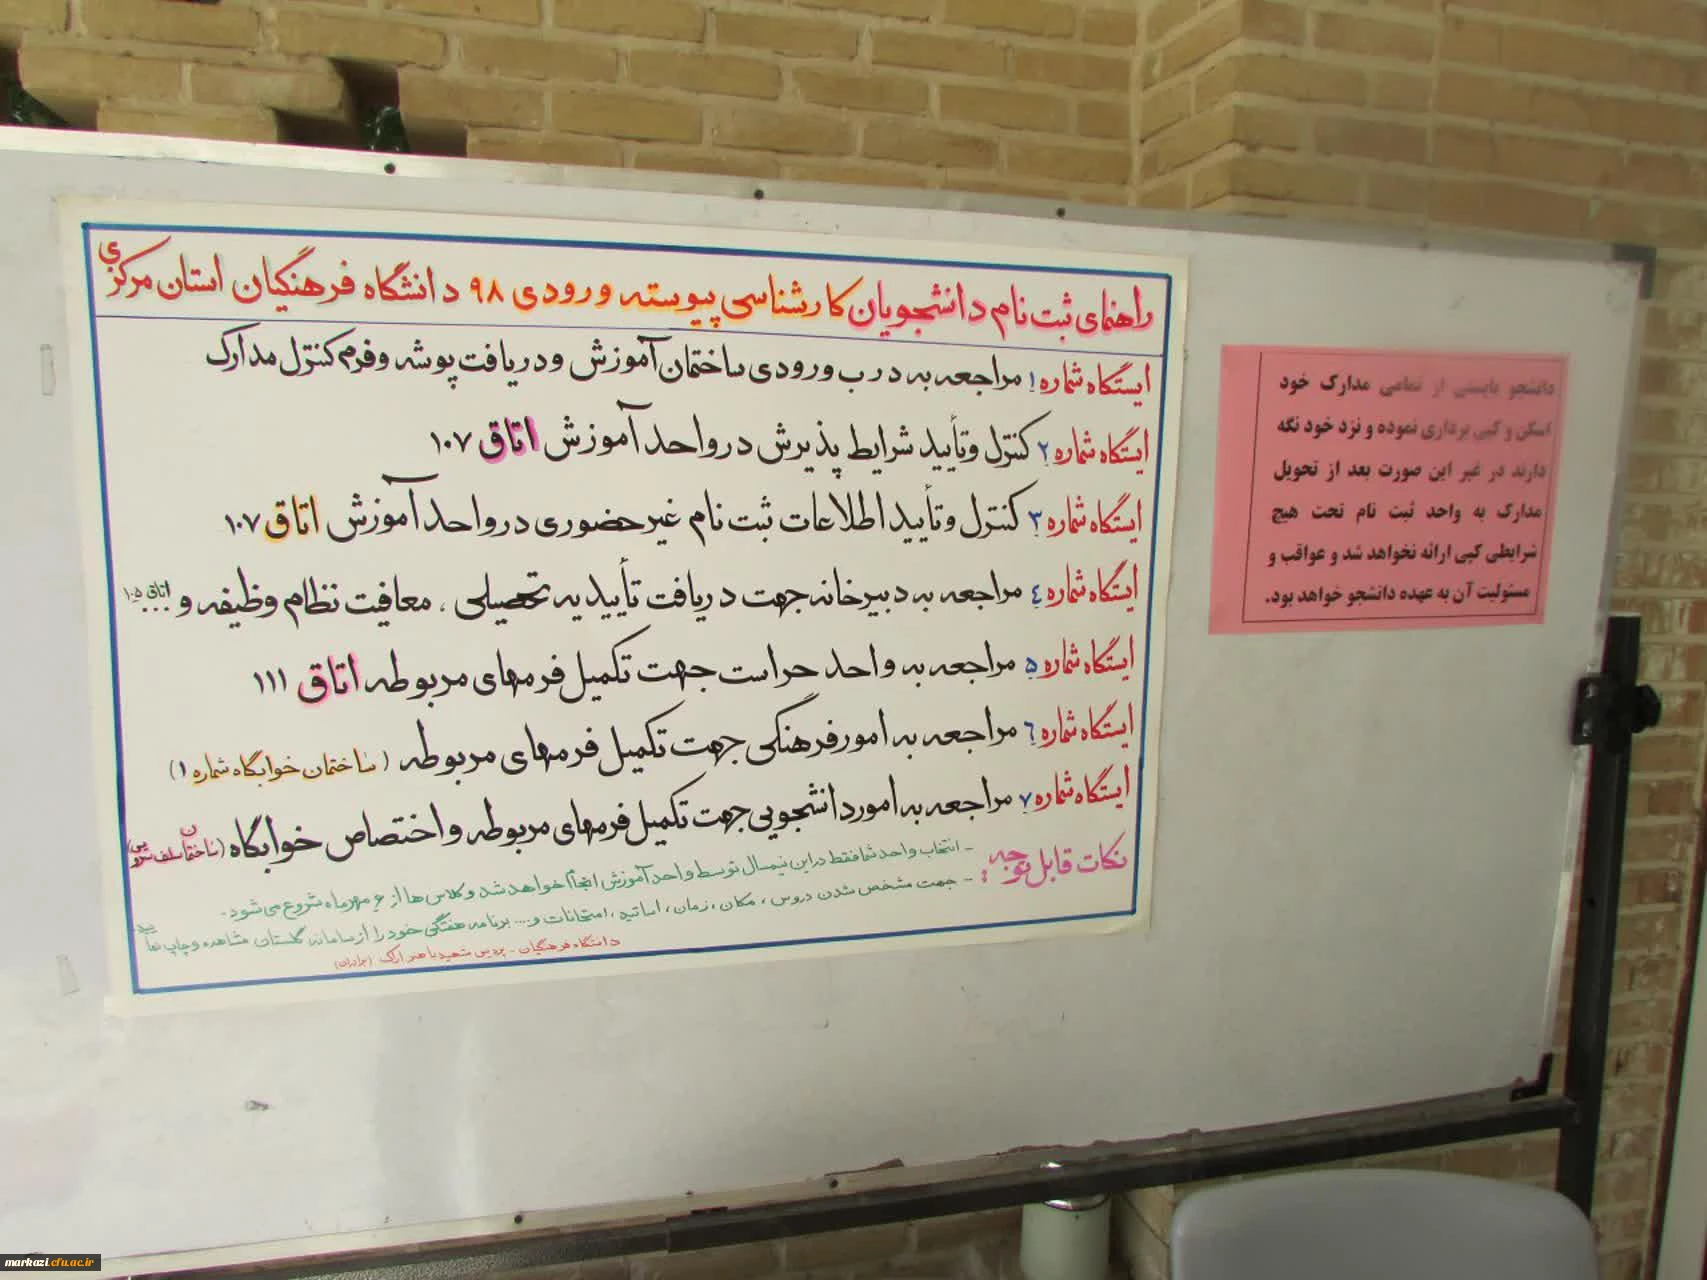 راهنمای ثبت نام دانشجویان کارشناسی پیوسته ورودی ۹۸ دانشگاه فرهنگیان استان مرکزی
ایستگاه شماره ۱ مراجعه به درب ورودی ساختمان آموزش و دریافت پوشه و فرم کنترل مدارک
ایستگاه شماره ۲ کنترل و تأیید شرایط پذیرش در واحد آموزش اتاق ۱۰۷
ایستگاه شماره ۳ کنترل و تأیید اطلاعات ثبت نام غیرحضوری در واحد آموزش اتاق ۱۰۷
ایستگاه شماره ٤ مراجعه به دبیرخانه جهت دریافت تأییدیه تحصیلی ، معافیت نظام وظیفه و ... اتاق ۱۰۵
ایستگاه شماره ۵ مراجعه به واحد حراست جهت تکمیل فرمهای مربوطه اتاق ۱۱۱
ایستگاه شماره ٦ مراجعه به امور فرهنگی جهت تکمیل فرمهای مربوطه (ساختمان خوابگاه شماره ۱)
ایستگاه شماره ۷ مراجعه به امور دانشجویی جهت تکمیل فرمهای مربوطه و اختصاص خوابگاه (ساختمان سلف سرویس)
نکات قابل توجه :
- انتخاب واحد شما فقط در این نیمسال توسط واحد آموزش انجام خواهد شد و کلاس ها از ۶ مهرماه شروع می شود.
- جهت مشخص شدن دروس ، مکان ، زمان ، اساتید ، امتحانات و .... برنامه هفتگی خود را از سامانه گلستان مشاهده و چاپ نمایید
دانشگاه فرهنگیان - پردیس شهید باهنر اراک (برادران)
دانشجو بایستی از تمامی مدارک خود
اسکن و کپی برداری نموده و نزد خود نگه
دارند در غیر این صورت بعد از تحویل
مدارک به واحد ثبت نام تحت هیچ
شرایطی کپی ارائه نخواهد شد و عواقب و
مسئولیت آن به عهده دانشجو خواهد بود.
markazi.cfu.ac.ir